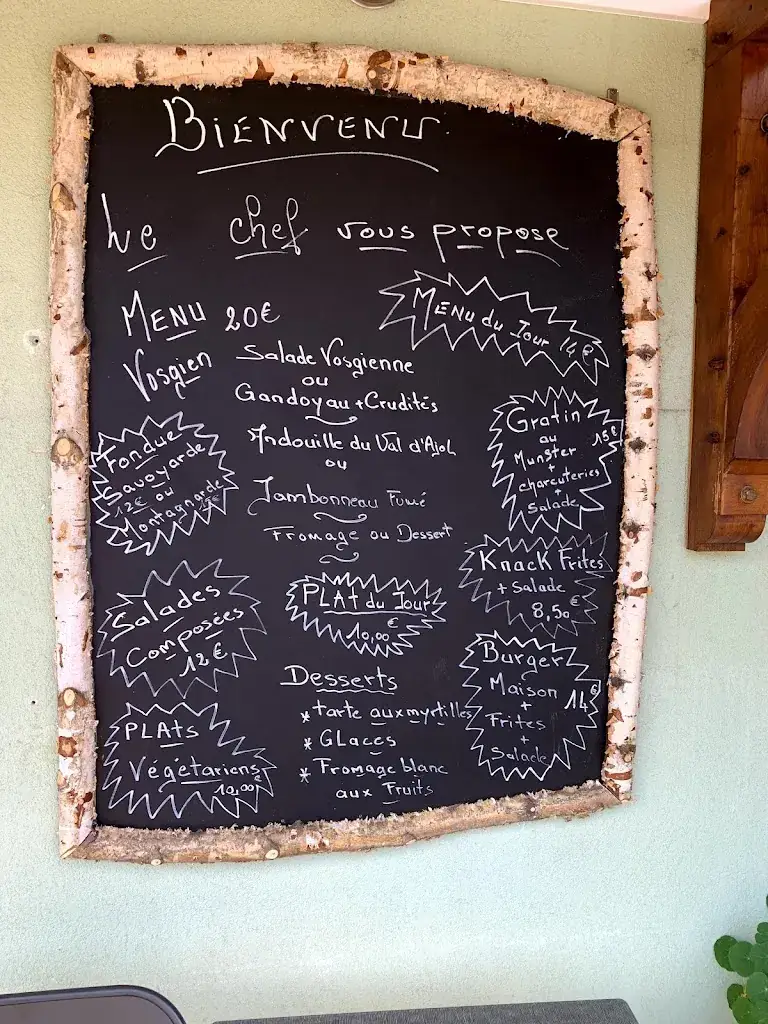 BiENVENU
Le chef vous propose
MENU 20€
Vosgien
Salade Vosgienne
ou
Gandoyau + Crudités
Andouille du Val d'Ajol
ou
Jambonneau Fumé
Fromage ou Dessert
MENU du Jour 14 €
Gratin
au 15€
Munster
+
charcuteries
+
Salade
Fondue
Savoyarde
12€ ou
Montagnarde
Salades
Composées
12€
PLAt du Jour
10,00 €
KnacK Frites
+ Salade
8,50 €
Burger
Maison 14€
+
Frites
+
Salade
PLAts
Végétariens
10,00€
Desserts
* tarte aux myrtilles
* GLaces
* Fromage blanc
aux Fruits